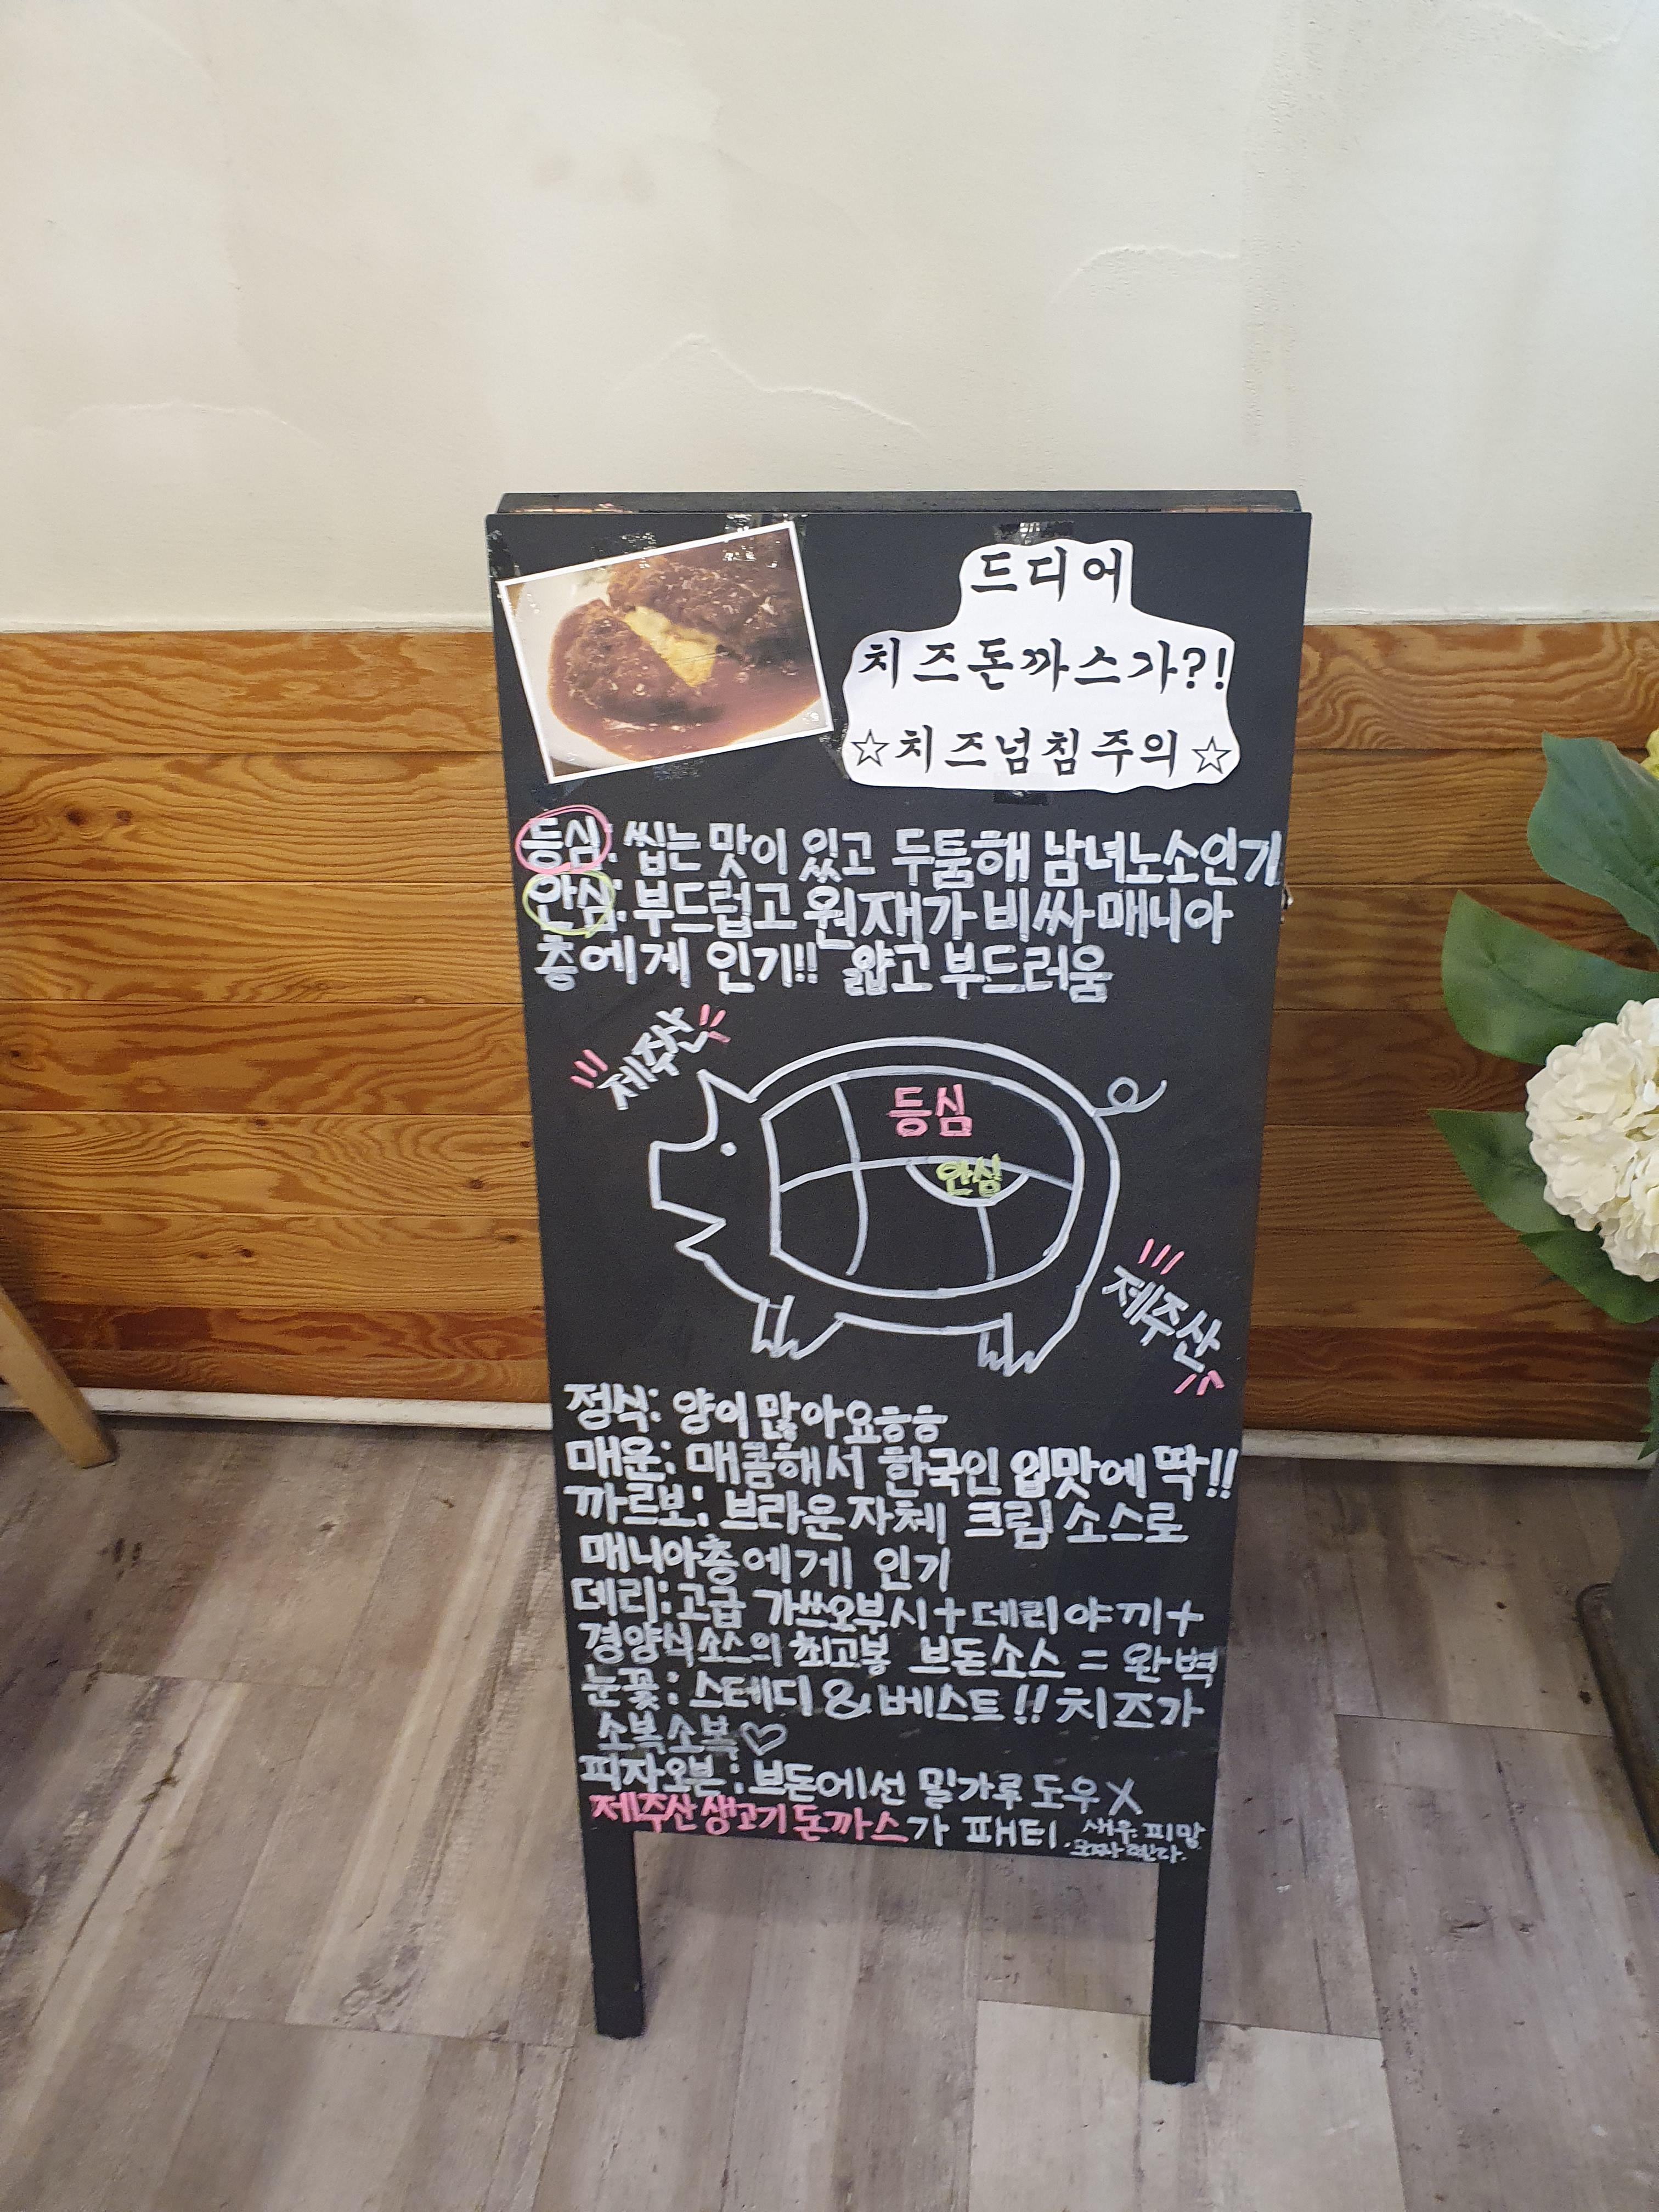 드디어
치즈돈까스가?!
☆치즈넘침주의☆
등심: 씹는 맛이 있고 두툼해 남녀노소인기
안심: 부드럽고 원재가 비싸 매니아
층에게 인기!! 얇고 부드러움
제주산
등심
안심
제주산
정식: 양이 많아요ㅎㅎ
매운: 매콤해서 한국인 입맛에 딱!!
까르보: 브라운 자체 크림 소스로
매니아층에게 인기
데리: 고급 가쓰오부시+데리야끼+
경양식소스의 최고봉 브돈소스 = 완벽
눈꽃: 스테디&베스트!! 치즈가
소복소복♡
피자오븐: 브돈에선 밀가루 도우X
제주산 생고기 돈까스가 패티. 새우 피망